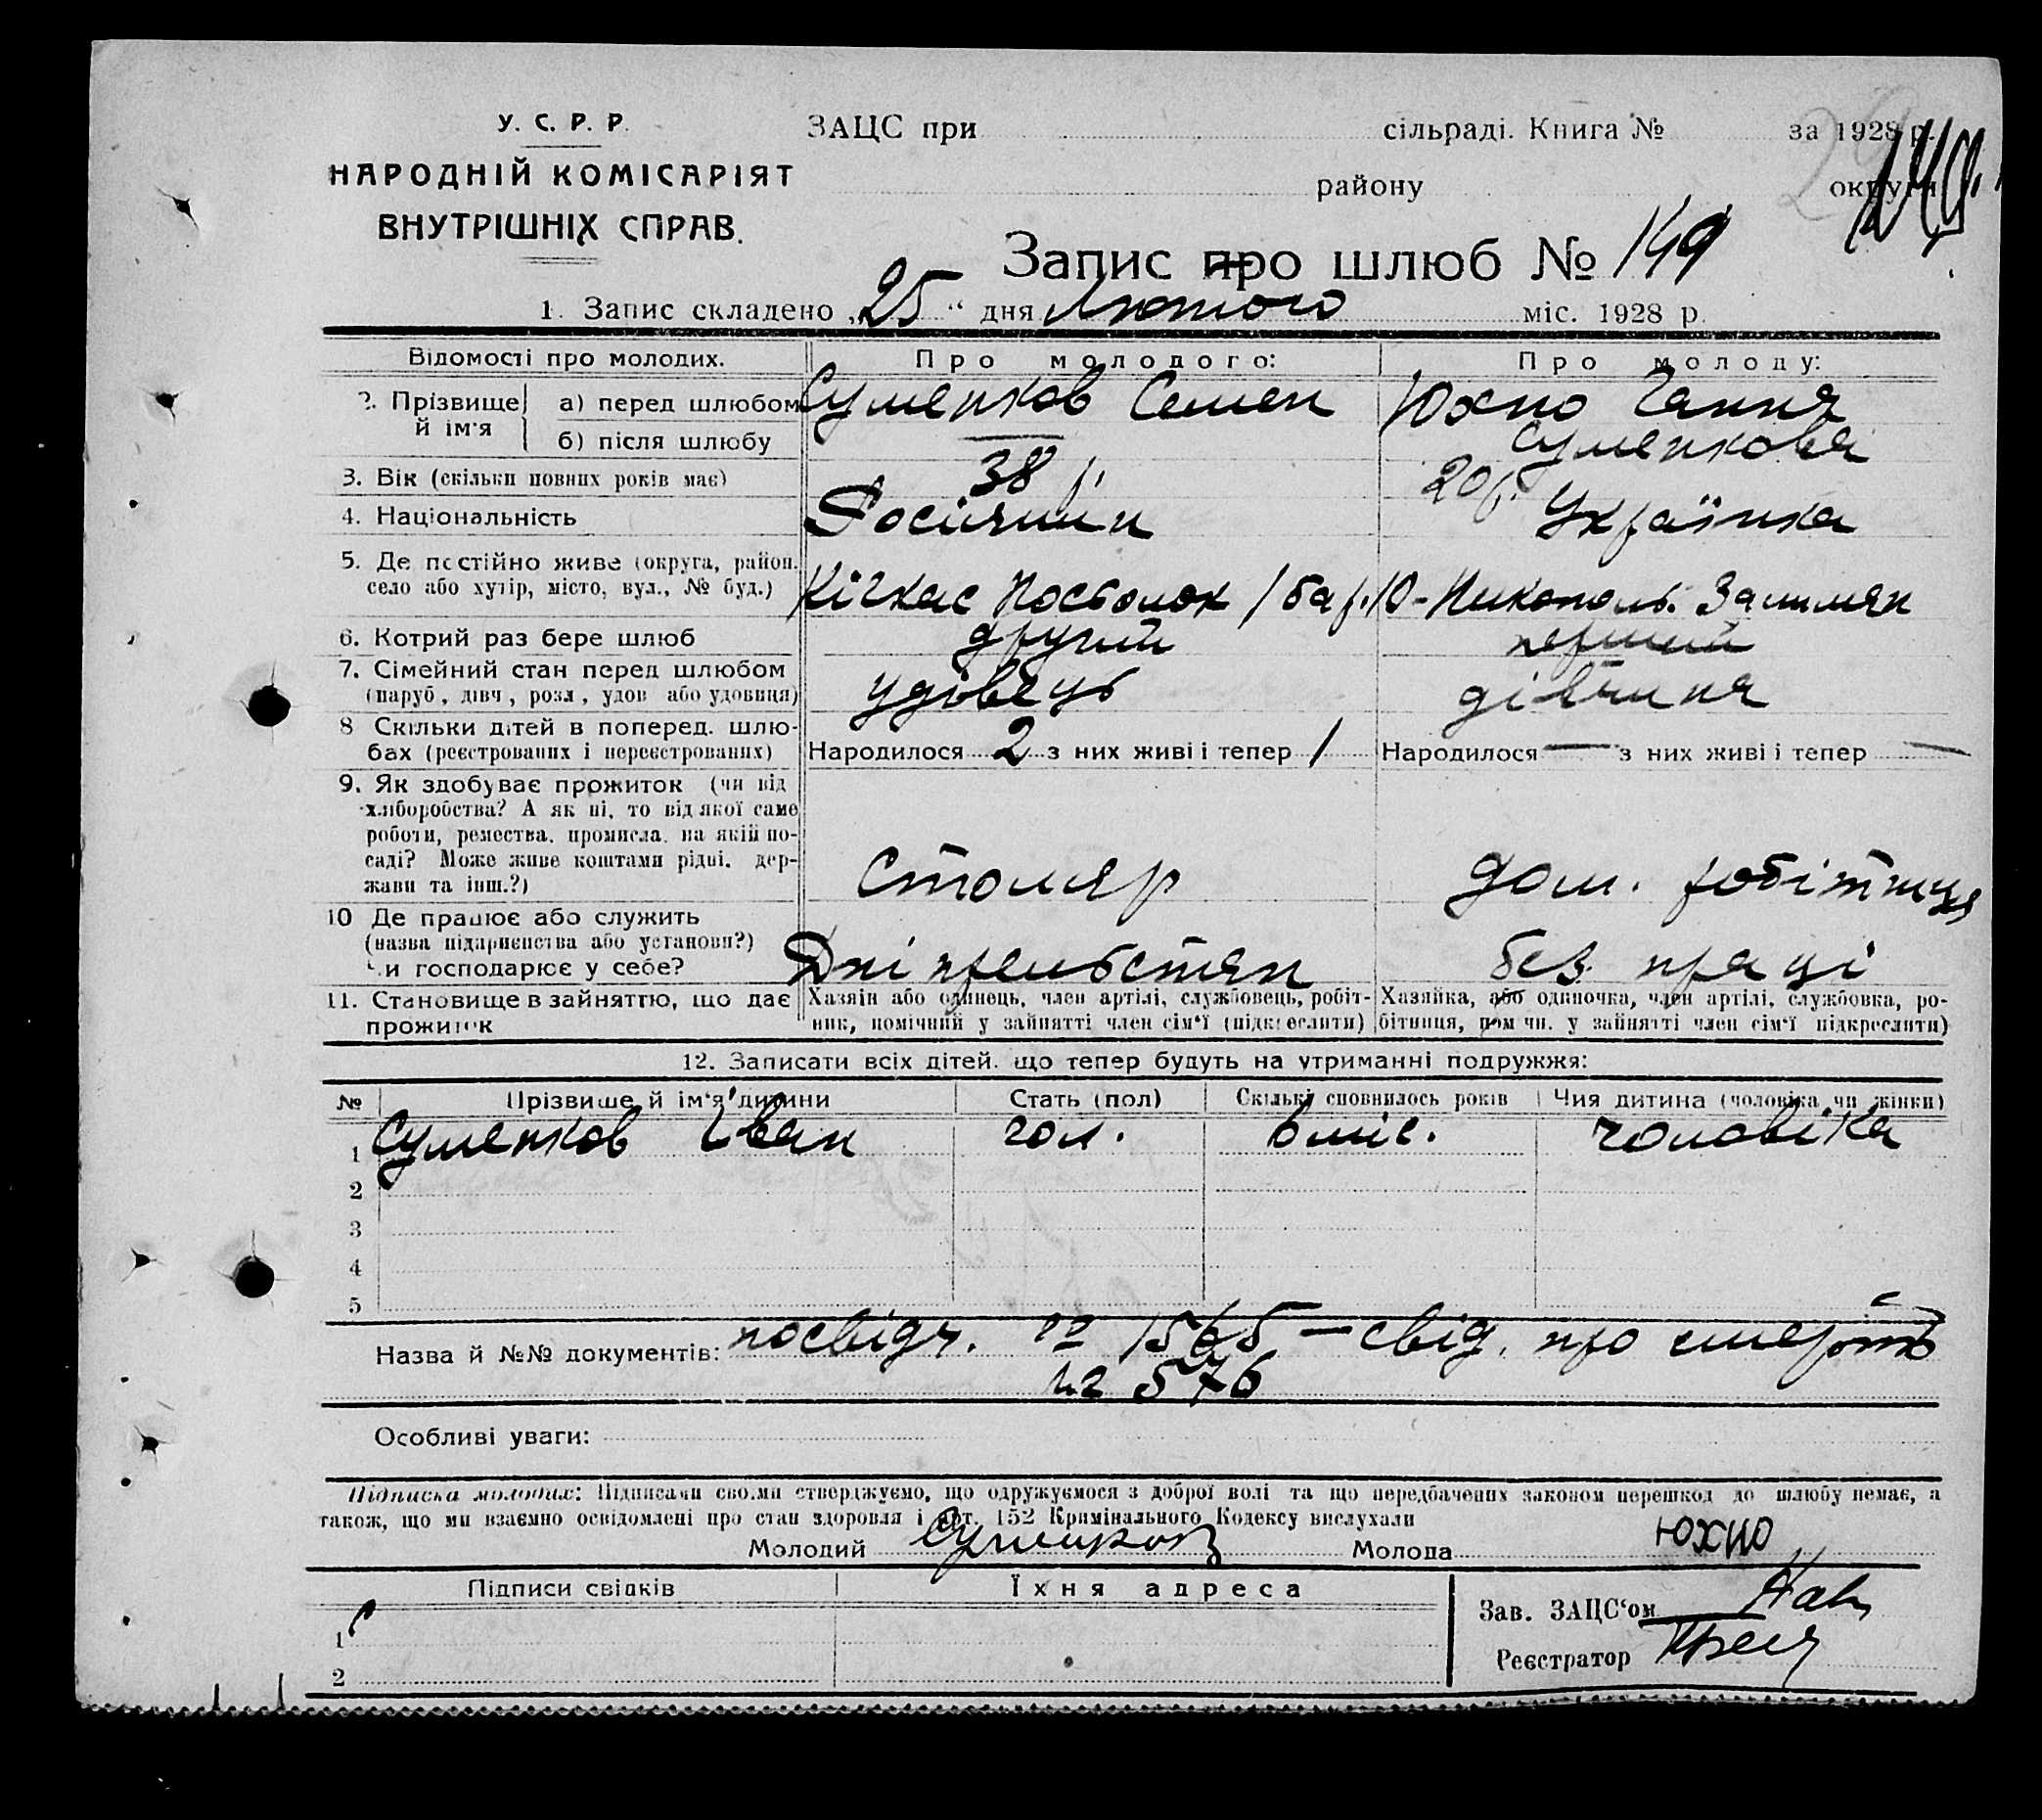 У. С. Р. Р.
НАРОДНІЙ КОМІСАРІЯТ
ВНУТРІШНІХ СПРАВ.
ЗАЦС при сільраді. Книга № за 1928 р.
району округи
149
Запис про шлюб № 149
1. Запис складено „25“ дня Лютого міс. 1928 р.
Відомості про молодих. Про молодого: Про молоду:
2. Прізвище й ім'я
а) перед шлюбом Суменков Семен Юхно Ганна
б) після шлюбу — Суменкова
3. Вік (скільки повних років має) 38 р. 20 р.
4. Національність Росіянин Українка
5. Де постійно живе (округа, район, село або хутір, місто, вул., № буд.) Кічкас Посьолок 1 бар. 10 - Никополь.
6. Котрий раз бере шлюб другий перший
7. Сімейний стан перед шлюбом (паруб, дівч, розл, удов або удовиця) удівець дівчина
8 Скільки дітей в поперед. шлюбах (реєстрованих і нереєстрованих) Народилося 2 з них живі і тепер 1 Народилося — з них живі і тепер —
9. Як здобуває прожиток (чи від
хліборобства? А як ні, то від якої саме
роботи, ремества, промисла, на якій по-
саді? Може живе коштами рідні, дер-
жави та інш.?) Столяр дом. робітниця
10 Де працює або служить
(назва підприємства або установи?)
чи господарює у себе? Дніпрельстан без праці
11. Становище в зайняттю, що дає прожиток
Хазяін або одинець, член артілі, службовець, робіт-
ник, помічний у зайнятті член сім'ї (підкреслити)
Хазяйка, або одиночка, член артілі, службовка, ро-
бітниця, пом чн. у зайнятті член сім'ї підкреслити)
12. Записати всіх дітей, що тепер будуть на утриманні подружжя:
№ Прізвише й ім'я дитини Стать (пол) Скільки сповнилось років Чия дитина (чоловіка чи жінки)
1 Суменков Іван чол. 6 міс. чоловіка
2
3
4
5
Назва й №№ документів: посвідч. № 1565 — свід. про смерть
№ 576
Особливі уваги:
Підписка молодих: Підписами своїми стверджуємо, що одружуємося з доброї волі та що передбачених законом перешкод до шлюбу немає, а
також, що ми взаємно освідомлені про стан здоровля і арт. 152 Кримінального Кодексу вислухали
Молодий Суменков Молода Юхно
Підписи свідків Їхня адреса
Зав. ЗАЦС'ом
1
Реєстратор
2